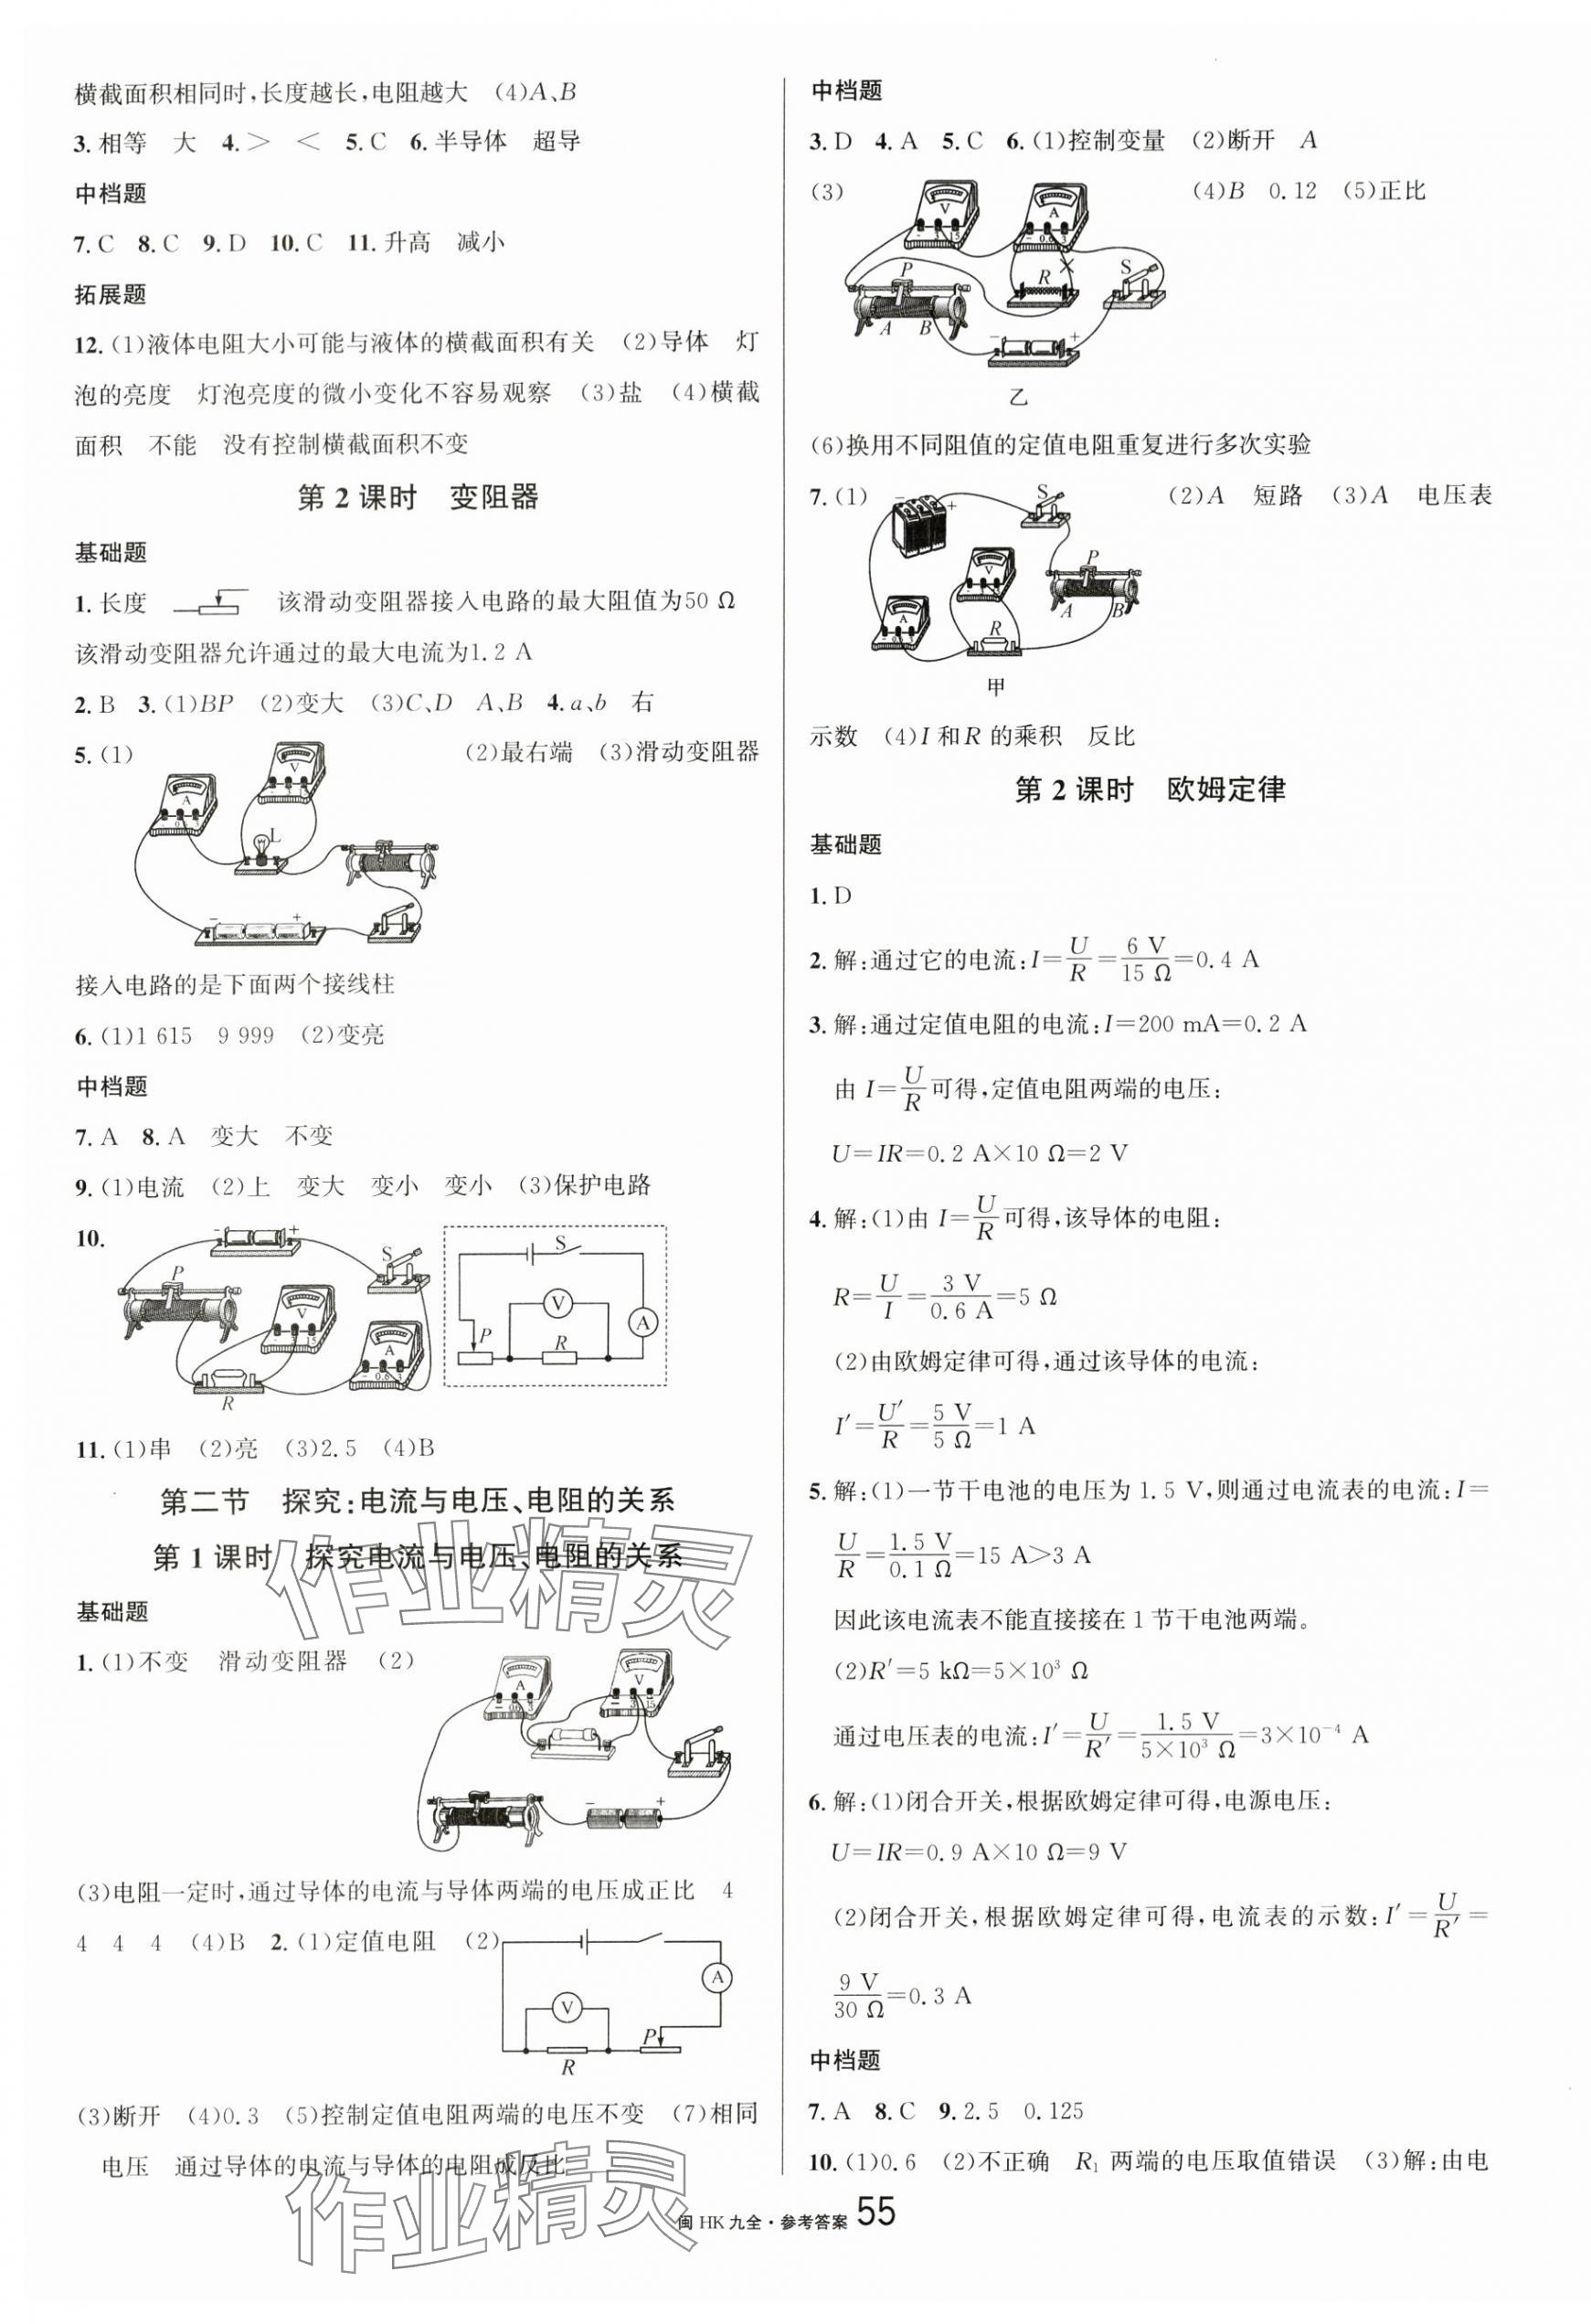 横截面积相同时,长度越长,电阻越大 (4)A、B
3.相等 大 4.> < 5.C 6.半导体 超导
中档题
7.C 8.C 9.D 10.C 11.升高 减小
拓展题
12.(1)液体电阻大小可能与液体的横截面积有关 (2)导体 灯
泡的亮度 灯泡亮度的微小变化不容易观察 (3)盐 (4)横截
面积 不能 没有控制横截面积不变
第2课时 变阻器
基础题
1.长度 该滑动变阻器接入电路的最大阻值为50 Ω
该滑动变阻器允许通过的最大电流为1.2 A
2.B 3.(1)BP (2)变大 (3)C、D A、B 4.a、b 右
5.(1) (2)最右端 (3)滑动变阻器
V
A
L
- +
接入电路的是下面两个接线柱
6.(1)1 615 9 999 (2)变亮
中档题
7.A 8.A 变大 不变
9.(1)电流 (2)上 变大 变小 变小 (3)保护电路
10.
- +
S
P
V
- 3 15
A
- 0.6 3
R
S
V
A
P
R
11.(1)串 (2)亮 (3)2.5 (4)B
第二节 探究:电流与电压、电阻的关系
第1课时 探究电流与电压、电阻的关系
基础题
1.(1)不变 滑动变阻器 (2)
A
- 0.6 3
V
- 3 15
- +
(3)电阻一定时,通过导体的电流与导体两端的电压成正比 4
4 4 4 (4)B 2.(1)定值电阻 (2)
A
V
P
R
(3)断开 (4)0.3 (5)控制定值电阻两端的电压不变 (7)相同
电压 通过导体的电流与导体的电阻成反比
中档题
3.D 4.A 5.C 6.(1)控制变量 (2)断开 A
(3) (4)B 0.12 (5)正比
V
- 3 15
A
- 0.6 3
P
R
S
A B
- +
乙
(6)换用不同阻值的定值电阻重复进行多次实验
7.(1) (2)A 短路 (3)A 电压表
- +
S
V
P
A B
A
R
甲
示数 (4)I和R的乘积 反比
第2课时 欧姆定律
基础题
1.D
2.解:通过它的电流:I=U/R=6 V/15 Ω=0.4 A
3.解:通过定值电阻的电流:I=200 mA=0.2 A
由I=U/R可得,定值电阻两端的电压:
U=IR=0.2 A×10 Ω=2 V
4.解:(1)由I=U/R可得,该导体的电阻:
R=U/I=3 V/0.6 A=5 Ω
(2)由欧姆定律可得,通过该导体的电流:
I′=U′/R=5 V/5 Ω=1 A
5.解:(1)一节干电池的电压为1.5 V,则通过电流表的电流:I=
U/R=1.5 V/0.1 Ω=15 A>3 A
因此该电流表不能直接接在1节干电池两端。
(2)R′=5 kΩ=5×10³ Ω
通过电压表的电流:I′=U/R′=1.5 V/5×10³ Ω=3×10⁻⁴ A
6.解:(1)闭合开关,根据欧姆定律可得,电源电压:
U=IR=0.9 A×10 Ω=9 V
(2)闭合开关,根据欧姆定律可得,电流表的示数:I′=U/R′=
9 V/30 Ω=0.3 A
中档题
7.A 8.C 9.2.5 0.125
10.(1)0.6 (2)不正确 R₁两端的电压取值错误 (3)解:由电
闽HK九全·参考答案 55
作业精灵
作业精灵